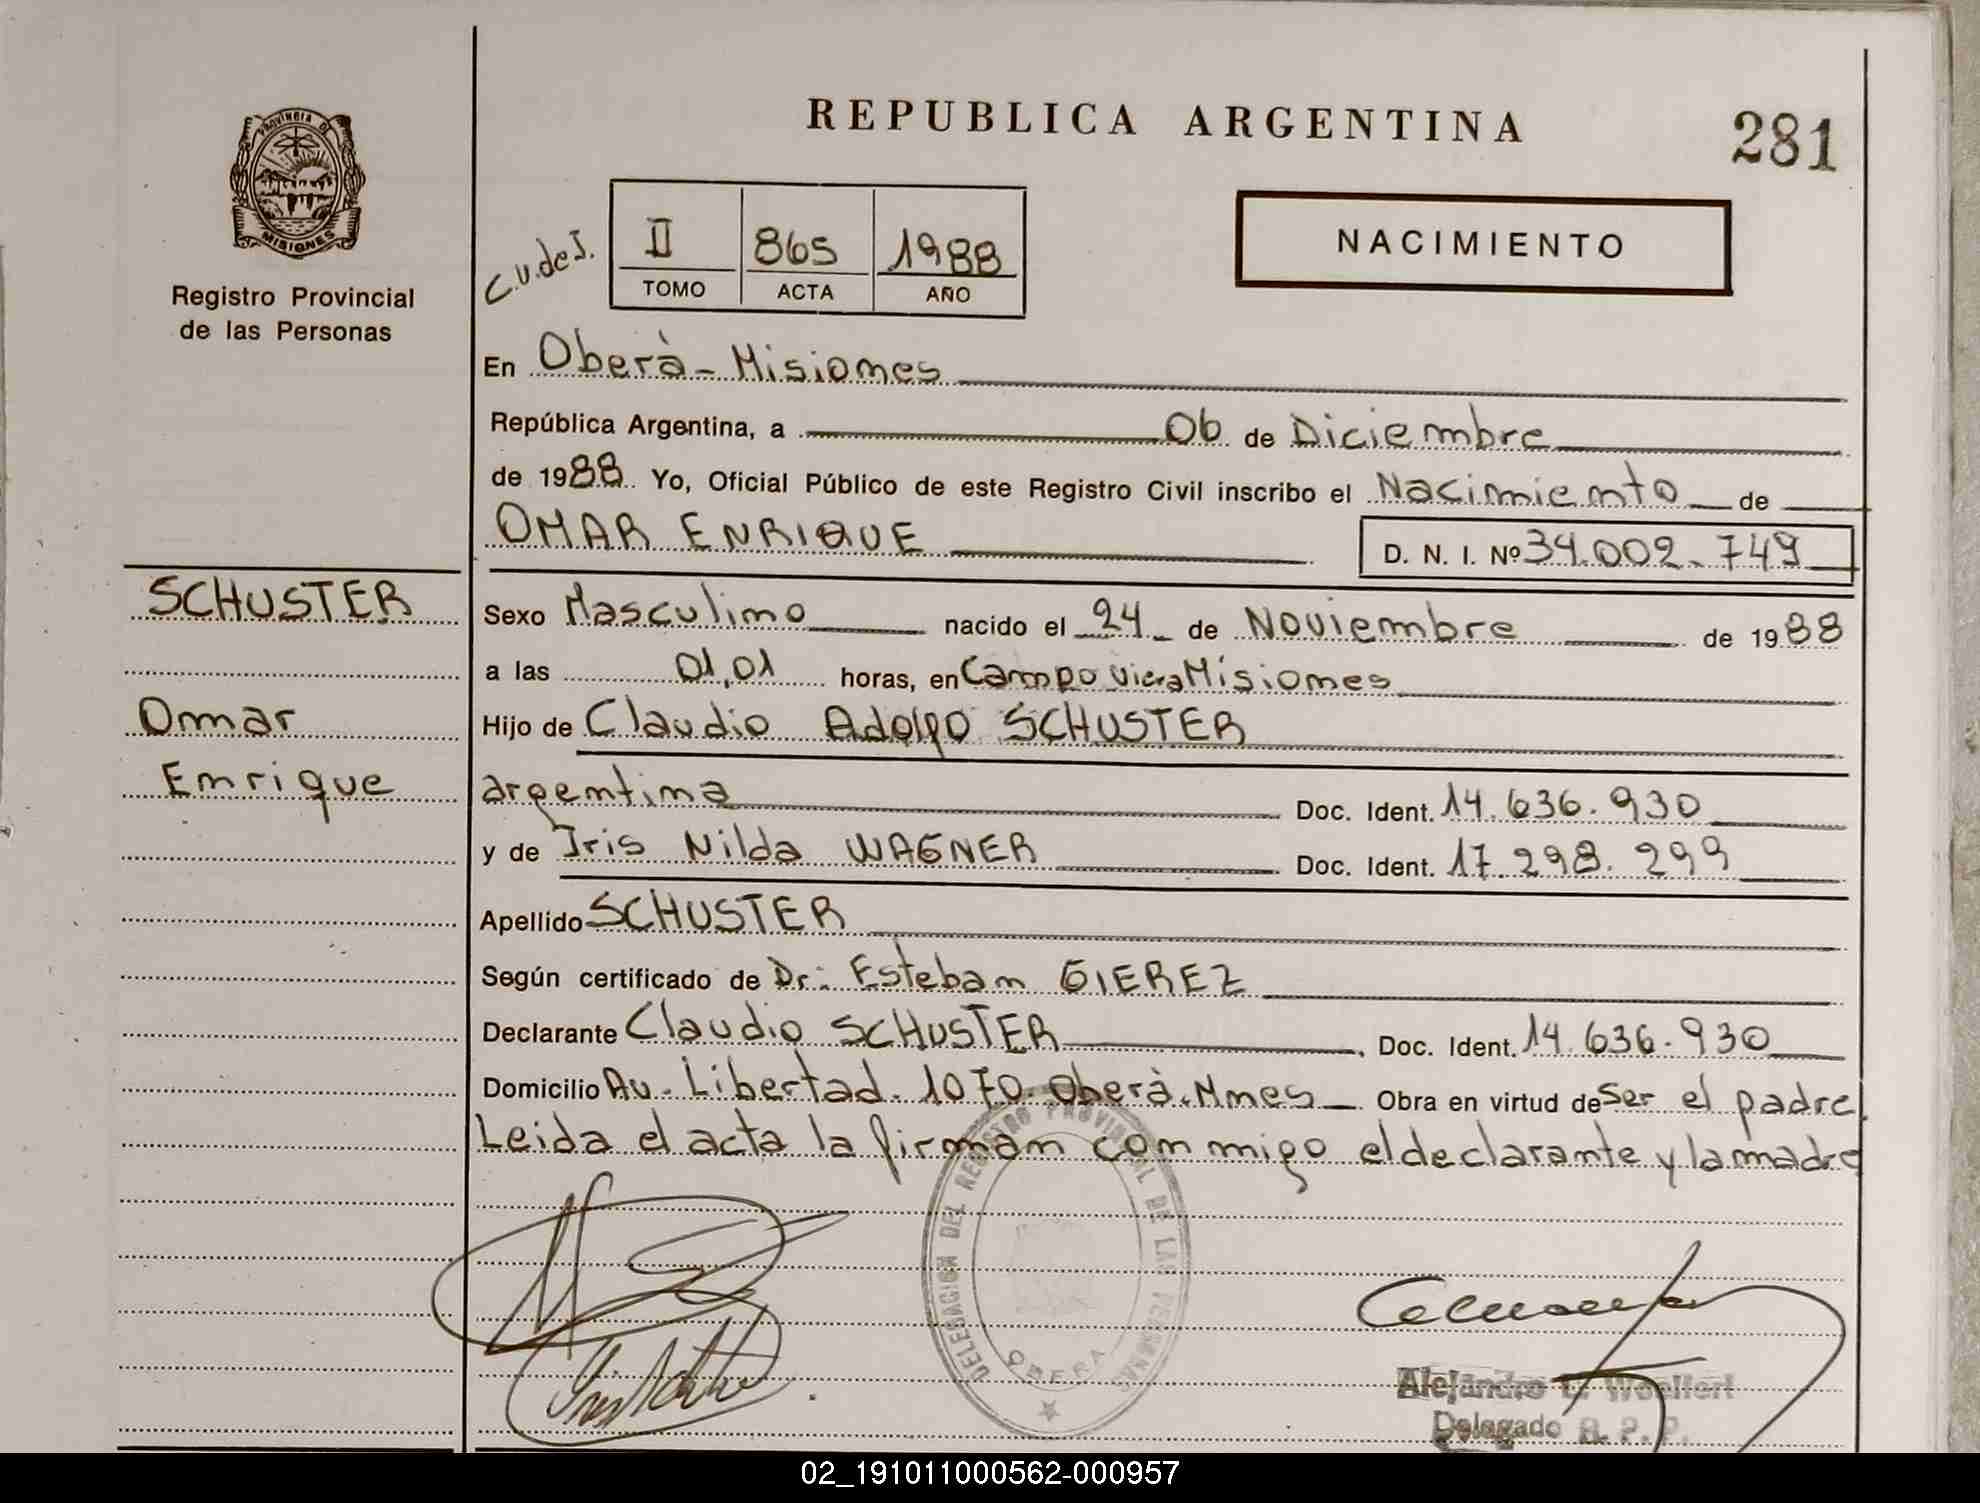 REPUBLICA ARGENTINA
281
PROVINCIA DE
MISIONES
Registro Provincial
de las Personas
C.V.deI.
II 865 1988
TOMO ACTA AÑO
NACIMIENTO
En Oberà - Misiones
República Argentina, a 06 de Diciembre
de 1988 Yo, Oficial Público de este Registro Civil inscribo el Nacimiento de
OMAR ENRIQUE
D. N. I. Nº 34.002.749
SCHUSTER
Omar
Enrique
Sexo Masculino nacido el 24 de Noviembre de 1988
a las 01,01 horas, en Campo Viera Misiones
Hijo de Claudio Adolfo SCHUSTER
argentina Doc. Ident. 14.636.930
y de Iris Nilda WAGNER Doc. Ident. 17.298.299
Apellido SCHUSTER
Según certificado de Dr: Esteban GIEREZ
Declarante Claudio SCHUSTER Doc. Ident. 14.636.930
Domicilio Av. Libertad. 1070. Oberà. Mnes Obra en virtud de ser el padre.
Leida el acta la firman conmigo el declarante y la madre
DELEGACION DEL REGISTRO PROVINCIAL DE LAS PERSONAS
OBERA
Alejandro
Delegado R. P. P.
02_191011000562-000957